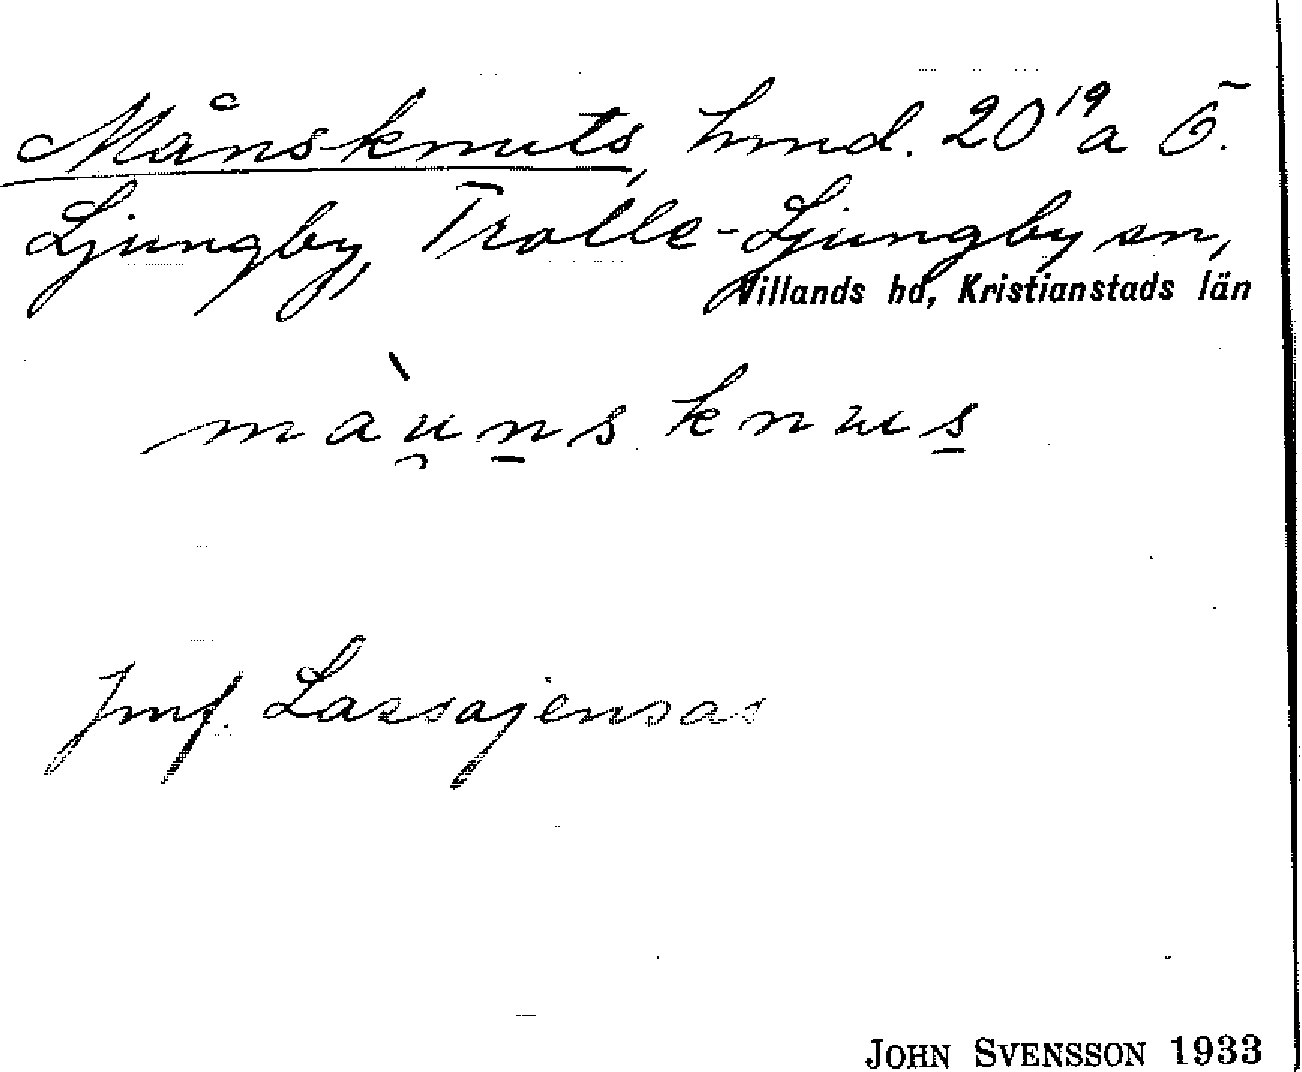 Månsknuts, hmd. 20¹⁹ a Ö.
Ljungby, Trolle-Ljungby sn,
Villands hd, Kristianstads län
màu̯n̲s knus̲
Jmf. Lassajensas
JOHN SVENSSON 1933